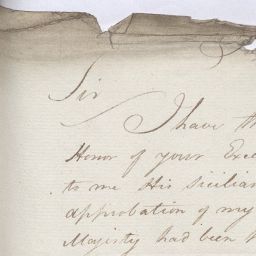 Sir
I have th
Honor of your Exce
to me His Sicilian
approbation of my
Majesty had been